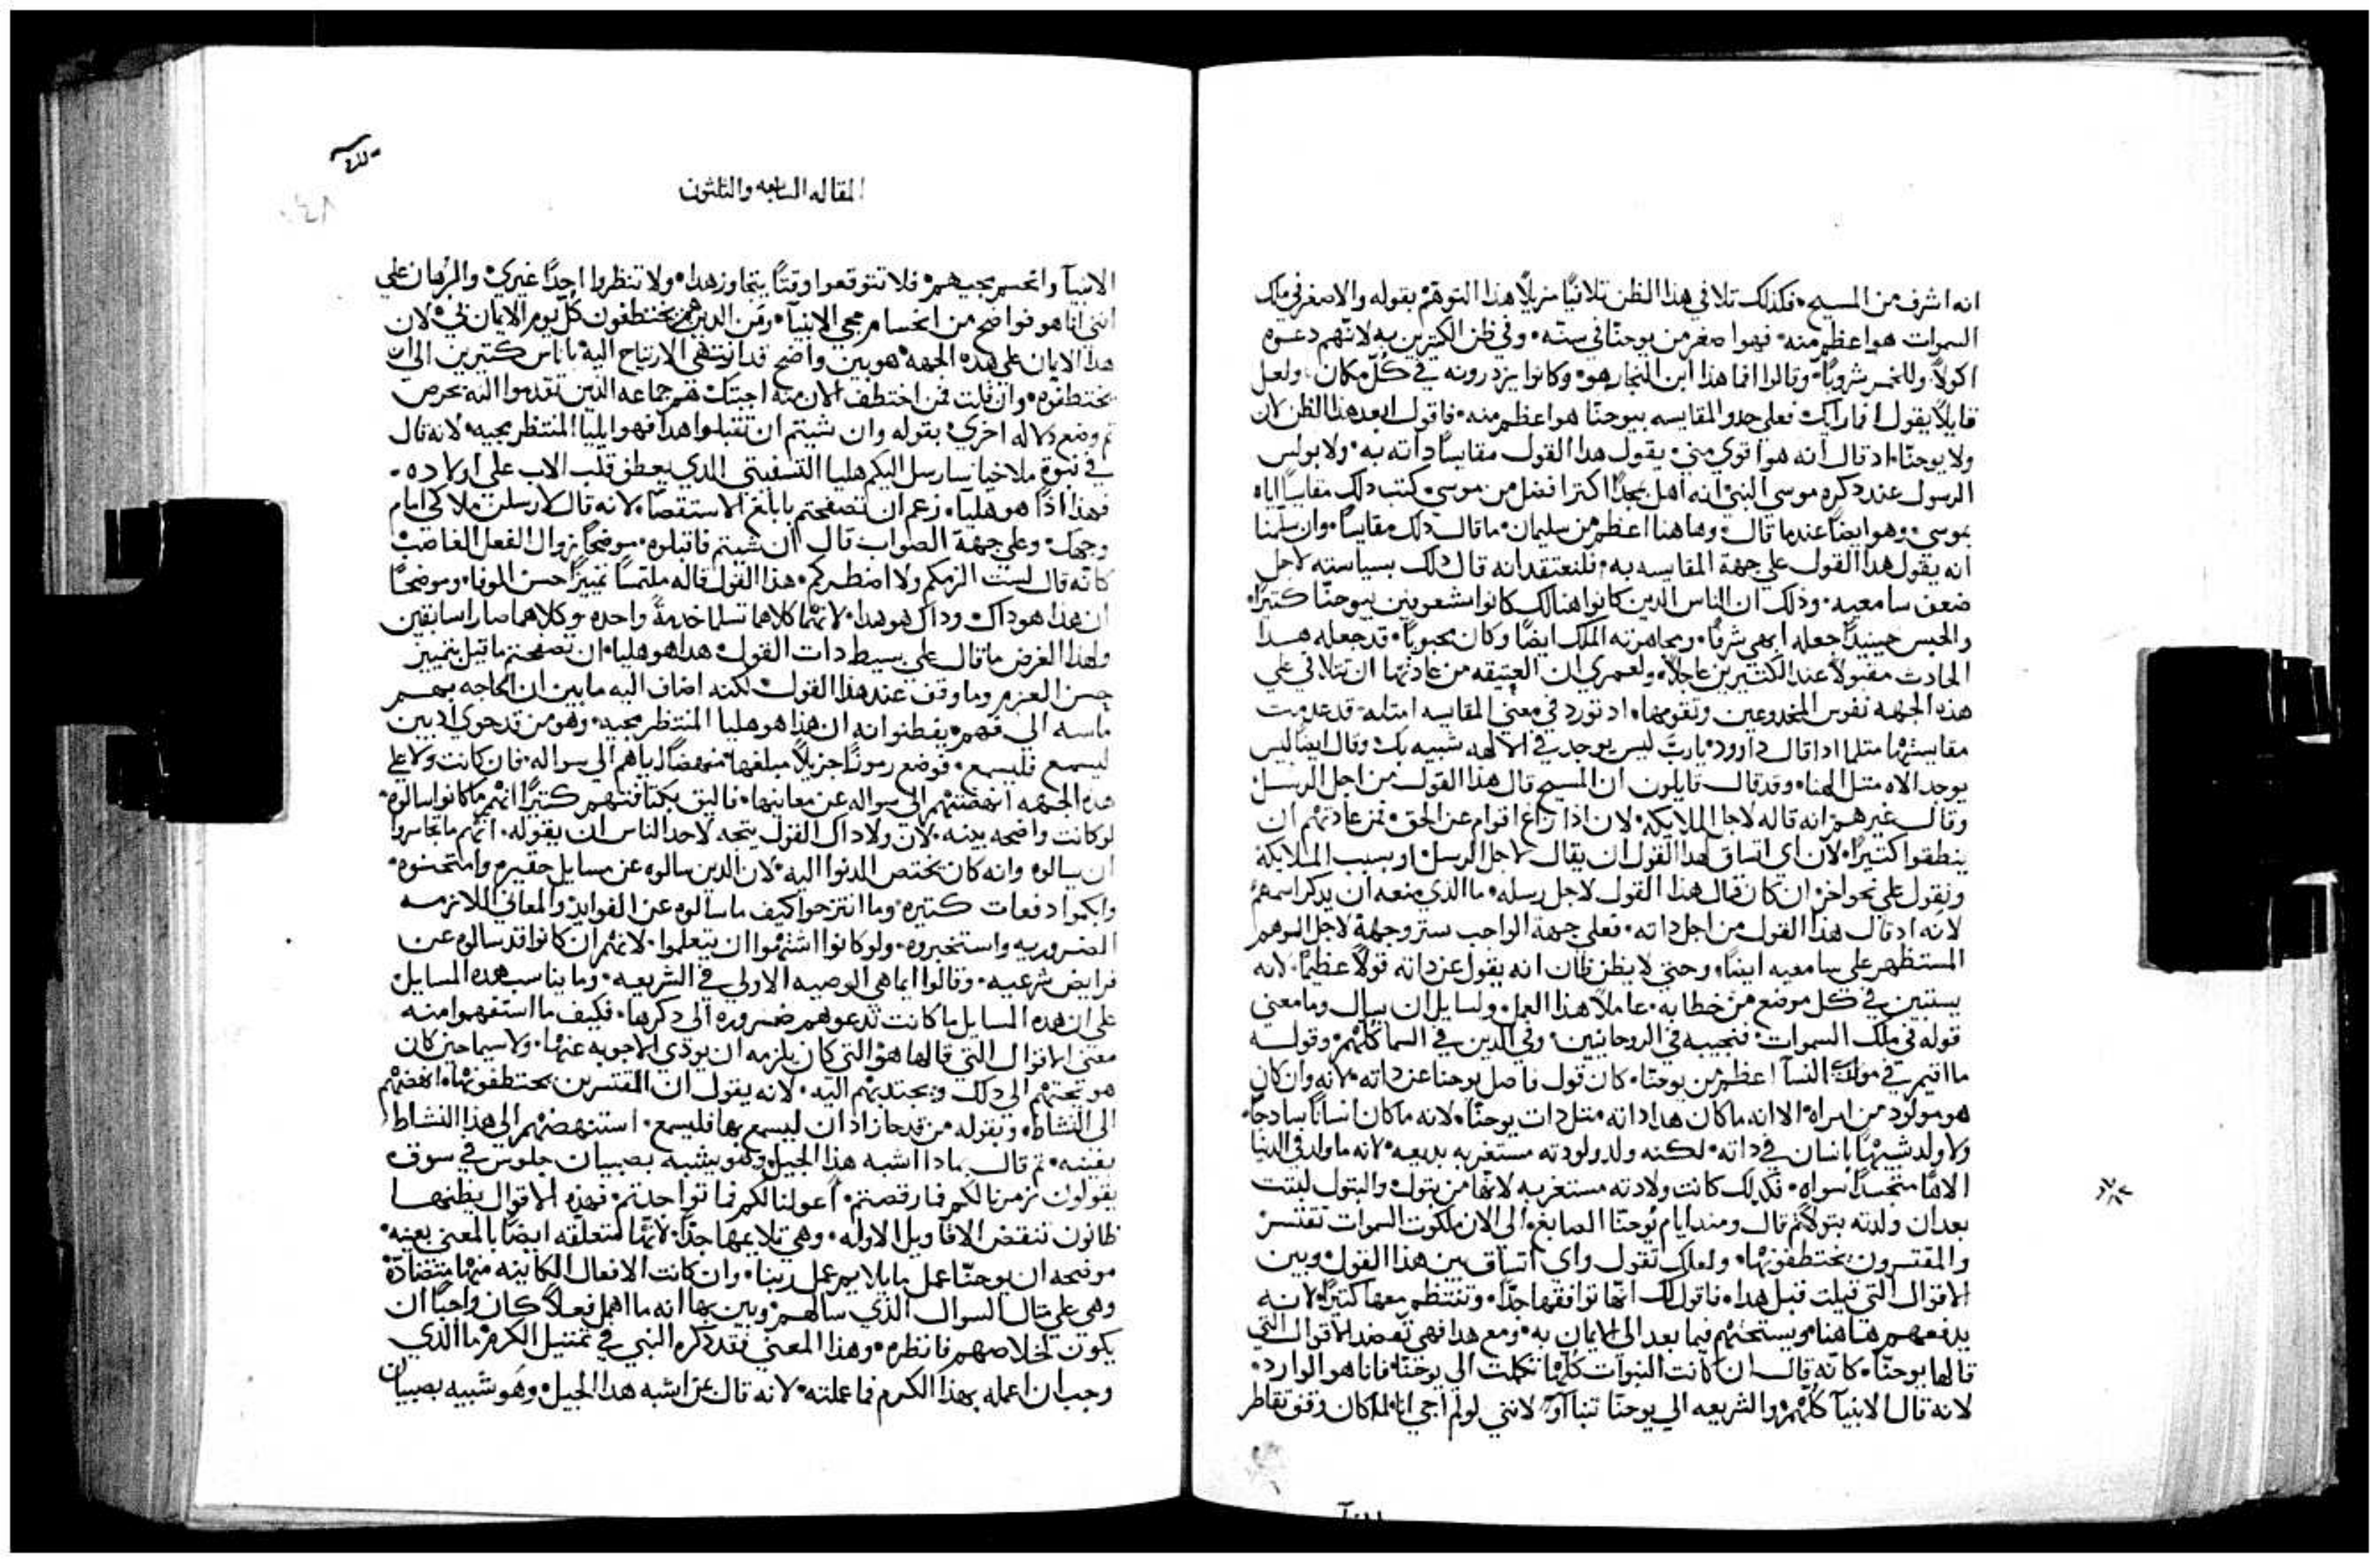 انه اشرف من المسيح، فكذلك تلافي هذا الظن تلافيًا مزيلًا هذا التوهم بقوله والاصغر في ملك
السموات هو اعظم منه، فهو اصغر من يوحنا في سنه، وفي ظن الكثيرين به لانهم دعوه
اكولًا وللخمر شروبًا، وقالوا اما هذا ابن النجار هو، وكانوا يزدرونه في كل مكان، ولعل
قايلًا يقول افمارايك فعلي حدو المقايسه بيوحنا هو اعظم منه، فاقول ابعد هذا الظن لان
ولا يوحنا اد قال انه هو اقوي مني، يقول هدا القول مقايسًا داته به، ولا بولس
الرسول عند دكره موسي النبي انه اهل مجدًا اكتر افضل من موسي، كتب دلك مقايسًا اياه
بموسي، وهو ايضًا عندما قال، وهاهنا اعظم من سليمان، ما قال دلك مقايسًا، وان سلمنا
انه يقول هدا القول علي جهة المقايسه به، فلنعتقد انه قال دلك بسياسته لاجل
ضعف سامعيه، ودلك ان الناس الدين كانوا هنالك كانوا مشعوبين بيوحنا كتيرًا،
والحبس حينيدٍ جعله ابهي شرفًا، ومجاهرته الملك ايضًا وكان محبوبًا، قد جعله هدا
الحادث مقبولًا عند الكتيرين عاجلًا، ولعمري ان العتيقه من عادتها ان تتلافي علي
هذه الجهه نفوس المخدوعين وتقومها، اد تورد في معني المقايسه امتله، قد عدمت
مقايستها متلما ادا قال داوود، يارب ليس يوجد في الالهه شبيه بك، وقال ايضًا ليس
يوجد الاه متل الهنا، وقد قال قايلون ان المسيح قال هذا القول من اجل الرسل
وقال غيرهم انه قاله لاجل الملايكه، لان اذا زاغ اقوام عن الحق، فمن عادتهم ان
ينطقوا كتيرًا، لان اي اتساق لهدا القول ان يقال لاجل الرسل او بسبب الملايكة
ونقول علي نحو اخر، ان كان قال هذا القول لاجل رسله، ما الذي منعه ان يدكر اسمهم
لانه اد قال هدا القول من اجل داته، فعلي جهة الواجب ستر وجهه لاجل الوهم
المستظهر علي سامعيه ايضًا، وحتي لا يظن ظان انه يقول عن داته قولًا عظيمًا، لانه
يستبين في كل موضع من خطابه، عاملًا هذا العمل، ولسايل ان يسال وما معني
قوله في ملك السموات، فنجيبه في الروحانيين، وفي الدين في السما كلهم، وقوله
ما اقيم في مواليد النسآ اعظم من يوحنا، كان قول فاصل يوحنا عن داته، لانه وان كان
هو مولود من امراه، الا انه ما كان هدا داته متل دات يوحنا، لانه ما كان انسانًا سادجًا،
ولا ولد شبيهًا بانسان في داته، لكنه ولد ولودته مستغربه بديعه، لانه ما ولد في الدنيا
الاهًا متجسدًا سواه، فكدلك كانت ولادته مستغربه لانها من بتول، والبتول لبتت
بعد ان ولدته بتولًا، ثم قال ومند ايام يوحنا الصابغ، الي الان ملكوت السموات تقتسر
والمقتسرون يختطفونها، ولعلك تقول واي اتساق بين هذا القول وبين
الاقوال التي قيلت قبل هدا، فاقول لك انها توافقها جدًا، وتنتظم معها كتيرًا، لانه
يدفعهم هاهنا ويستحتهم فيما بعد الي الايمان به، ومع هدا فهي تعضد الاقوال التي
قالها يوحنا، كانه قال ان كانت النبوات كلها تكملت الي يوحنا، فانا هو الوارد،
لانه قال الانبيآ كلهم والشريعه الي يوحنا تنباآو، لانني لو لم اجي انا، لما كان وقف تقاطر
المقاله السابعه والتلتون
الانبيآ وانحسم مجيهم، فلا تتوقعوا وقتًا يتجاوز هدا، ولا تنظروا احدًا غيري، والبرهان علي
انني انا هو فواضح من انحسام مجي الانبيآ، ومن الدين هم يختطفون كل يوم الايمان بي، لان
هدا الايمان علي هده الجهه، هو بين واضح قد انتهي الارتياح اليه باناس كتيرين الي ان
يختطفوه، وان قلت فمن اختطف الان منه اجبتك هم جماعه الدين تقدموا اليه بحرص
تم وضع دلاله اخري، بقوله وان شيتم ان تقبلوا هدا فهو ايليا المنتظر مجيه، لانه قال
في نبوة ملاخيا، سارسل اليكم هليا التسفيتي الدي يعطف قلب الاب علي اولاده،
فهذا ادًا هو هليا، زعم ان تصفحتم بابلغ الاستقصا، لانه قال لارسلن ملاكي امام
وجهك، وعلي جهة الصواب قال ان شيتم فاقبلوه، موضحًا زوال الفعل الغاصب
كانه قال لست الزمكم ولا اضطركم، هذا القول قاله ملتمسًا تمييزًا حسن الوفا، وموضحًا
ان هذا هو داك، وداك هو هدا، لانهما كلاهما تسلما خدمةً واحده، وكلاهما صارا سابقين
ولهذا الغرض ما قال علي بسيط دات القول، هدا هو هليا، ان تصفحتم ما قيل بتمييز
حسن العزم، وما وقف عند هذا القول، لكنه اضاف اليه ما يبين ان الحاجه بهم
ماسه الي فهم، يفطنوا به ان هذا هو هليا المنتظر مجيه، وهو من قد حوي ادنين
ليسمع فليسمع، فوضع رموزًا جزيلًا مبلغها، منهضًا اياهم الي سواله، فان كانت ولا علي
هده الجهه انهضتهم الي سواله عن معانيها، فاليق بكتافتهم كتيرًا، انهم ما كانوا سالوه
لو كانت واضحه بينه، لان ولا داك القول يتجه لاحد الناس ان يقوله، انهم ما تجاسروا
ان يسالوه وانه كان يختص الدنوا اليه، لان الدين سالوه عن مسايل حقيره وامتحنوه،
وابكموا دفعات كتيره، وما انتزحوا كيف ما سالوه عن الفوايد والمعاني اللازمه
الضروريه واستخبروه، ولو كانوا اشتهوا ان يتعلموا، لانهم ان كانوا قد سالوه عن
فرايض شرعيه، وقالوا ايما هي الوصيه الاولي في الشريعه، وما يناسب هده المسايل
علي ان هده المسايل ما كانت تدعوهم ضروره الي دكرها، فكيف ما استفهموا منه
معني الاقوال التي قالها هو، التي كان يلزمه ان يودي الاجوبه عنها، ولا سيما حين كان
هو يحتهم الي دلك ويجتدبهم اليه، لانه يقول ان المقتسرين يختطفونها، انهضهم
الي النشاط، وبقوله من قد حاز ادان ليسمع بها فليسمع، استنهضهم الي هذا النشاط
بعينه، تم قال بمادا اشبه هذا الجيل، وهو يشبه بصبيان جلوس في سوق
يقولون زمرنا لكم فما رقصتم، اعولنا لكم فما نواحتم، فهذه الاقوال يظنها
ظانون تنقض الاقاويل الاوله، وهي تلايمها جدًا، لانها متعلقه ايضًا بالمعني بعينه،
موضحه ان يوحنا عمل ما يلايم عمل ربنا، وان كانت الافعال الكاينه منهما متضادة
وهي علي متال السوال الذي سالهم، وبين بها انه ما اهمل فعلًا كان واجبًا ان
يكون لخلاصهم فانظره، وهذا المعني فقد دكره النبي في تمتيل الكرم، ما الذي
وجب ان اعمله بهذا الكرم فما عملته، لانه قال بمن اشبه هدا الجيل، وهو شبيه بصبيان